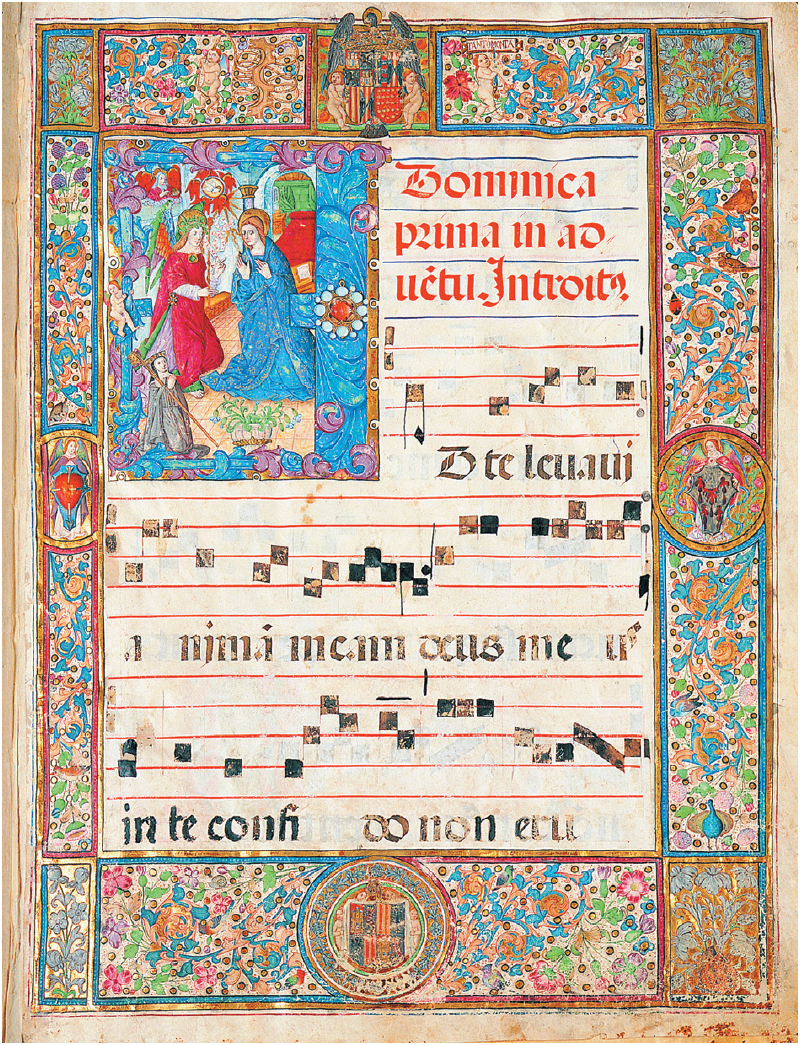 TANTO MONTA
Dominica
prima in ad
uētu. Introitꝰ
D te leuaui
a nimā meam deus me us
in te confi do non eru